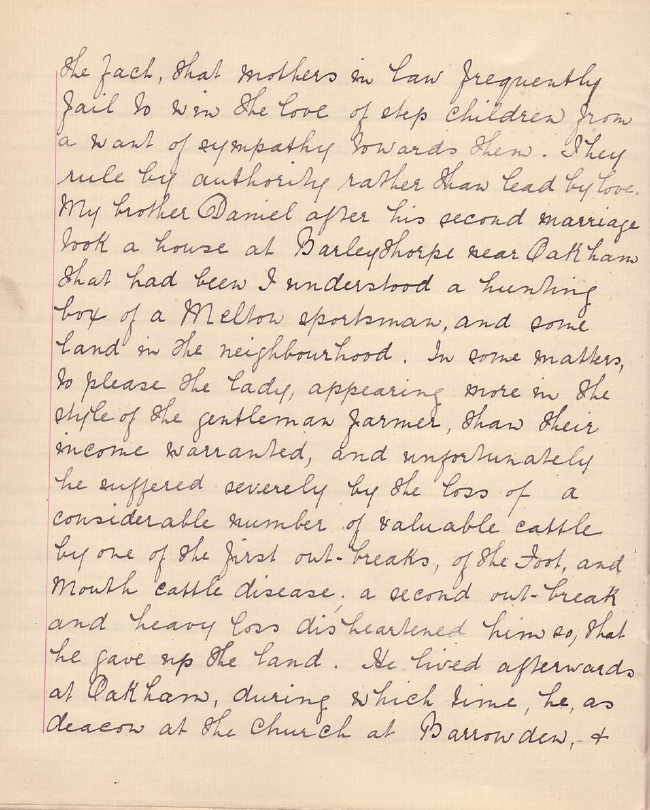 the fact, that mothers in law frequently
fail to win the love of step children from
a want of sympathy towards them. They
rule by authority rather than lead by love.
My brother Daniel after his second marriage
took a house at Barleythorpe near Oakham
that had been I understood a hunting
box of a Melton sportsman, and some
land in the neighbourhood. In some matters,
to please the lady, appearing more in the
style of the gentleman farmer, than their
income warranted, and unfortunately
he suffered severely by the loss of a
considerable number of valuable cattle
by one of the first out-breaks, of the Foot, and
Mouth cattle disease; a second out-break
and heavy loss disheartened him so, that
he gave up the land. He lived afterwards
at Oakham, during which time, he, as
deacon at the Church at Barrowden, &